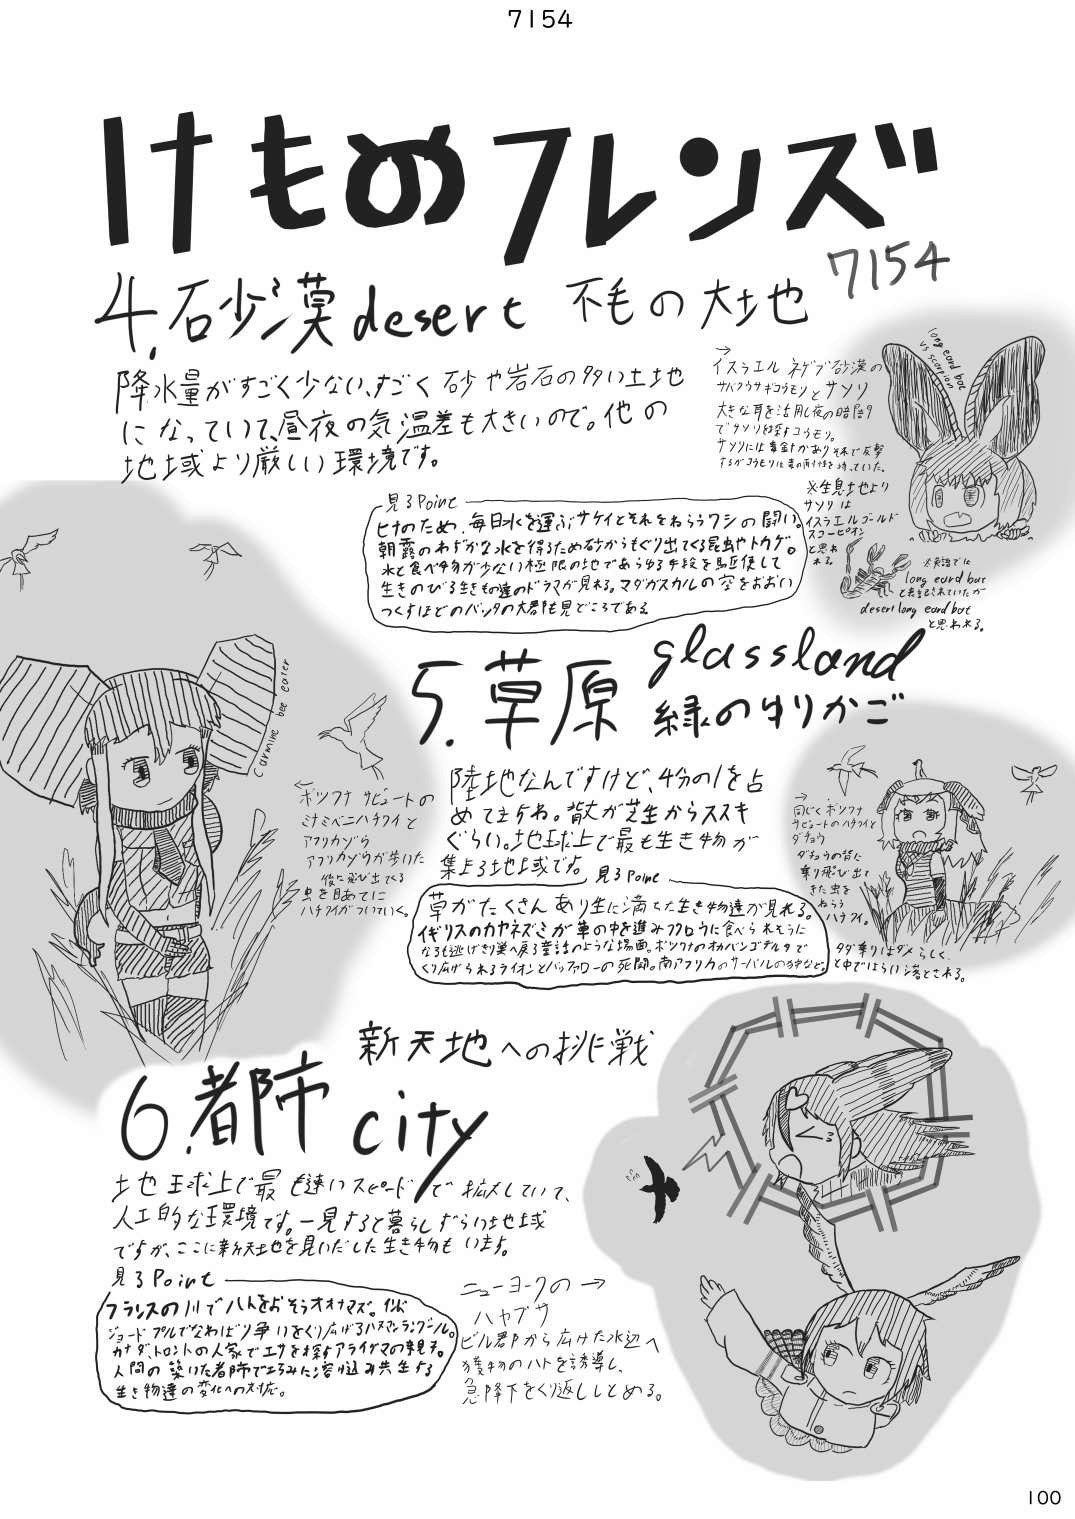 7154
けものフレンズ
7154
4.砂漠 desert 不毛の大地
降水量がすごく少ない、すごく砂や岩石の多い土地
になっていて、昼夜の気温差も大きいので。他の
地域より厳しい環境です。
→
イスラエル ネゲブ砂漠の
サバクウサギコウモリとサソリ
大きな耳を活用し夜の暗闇
でサソリを探すコウモリ。
サソリには毒金十があり それで反撃
するがコウモリは毒の耐性を持っていた。
long eard bat
vs scorpion
※生息地より
サソリは
イスラエルゴールド
スコーピオン
と思わ
れる。
※英語では
long eard bat
と表記されていたが
desert long eard bat
と思われる。
見るPoint
ヒナのため、毎日水を運ぶサケイとそれをねらうワシの闘い。
朝露のわずかな水を得るため砂からもぐり出てくる昆虫やトカゲ。
水と食べ物が少ない極限の地であらゆる手段を駆使して
生きのびる生きもの達のドラマが見れる。マダガスカルの空をおおい
つくすほどのバッタの大群も見どころである
5.草原 glassland
緑のゆりかご
陸地なんですけど、4分の1を占
めてますね。背丈が芝生からススキ
ぐらい。地球上で最も生き物が
集まる地域です。
Carmine bee eater
←
ボツワナ サビュートの
ミナミベニハチクイと
アフリカゾウ
アフリカゾウが歩いた
後に飛び出てくる
虫を目あてに
ハチクイがついていく。
→
同じく ボツワナ
サビュートのハチクイと
ダチョウ
ダチョウの背に
乗り飛び出て
きた虫を
ねらう
ハチクイ。
タダ乗りはダメらしく、
と中ではらい落とされる。
見るPoint
草がたくさんあり生に満ちた生き物達が見れる。
イギリスのカヤネズミが草の中を進みフクロウに食べられそうに
なるも逃げきり巣へ戻る童話のような場面。ボツワナのオカバンゴデルタで
くり広げられるライオンとバッファローの死闘。南アフリカのサーバルの狩など。
新天地への挑戦
6.都市 city
地球上で最も速いスピードで拡大していて、
人工的な環境です。一見すると暮らしずらい地域
ですが、ここに新天地を見いだした生き物もいます。
見るPoint
フランスの川でハトをおそうオオナマズ。インド
ジョードプルでなわばり争いをくり広げるハヌマンラングール。
カナダ、トロントの人家でエサを探すアライグマの親子。
人間の築いた都市で巧みに溶け込み共生する
生き物達の変化への対応。
ニューヨークの →
ハヤブサ
ビル群から広けた水辺へ
獲物のハトを誘導し、
急降下をくり返ししとめる。
100